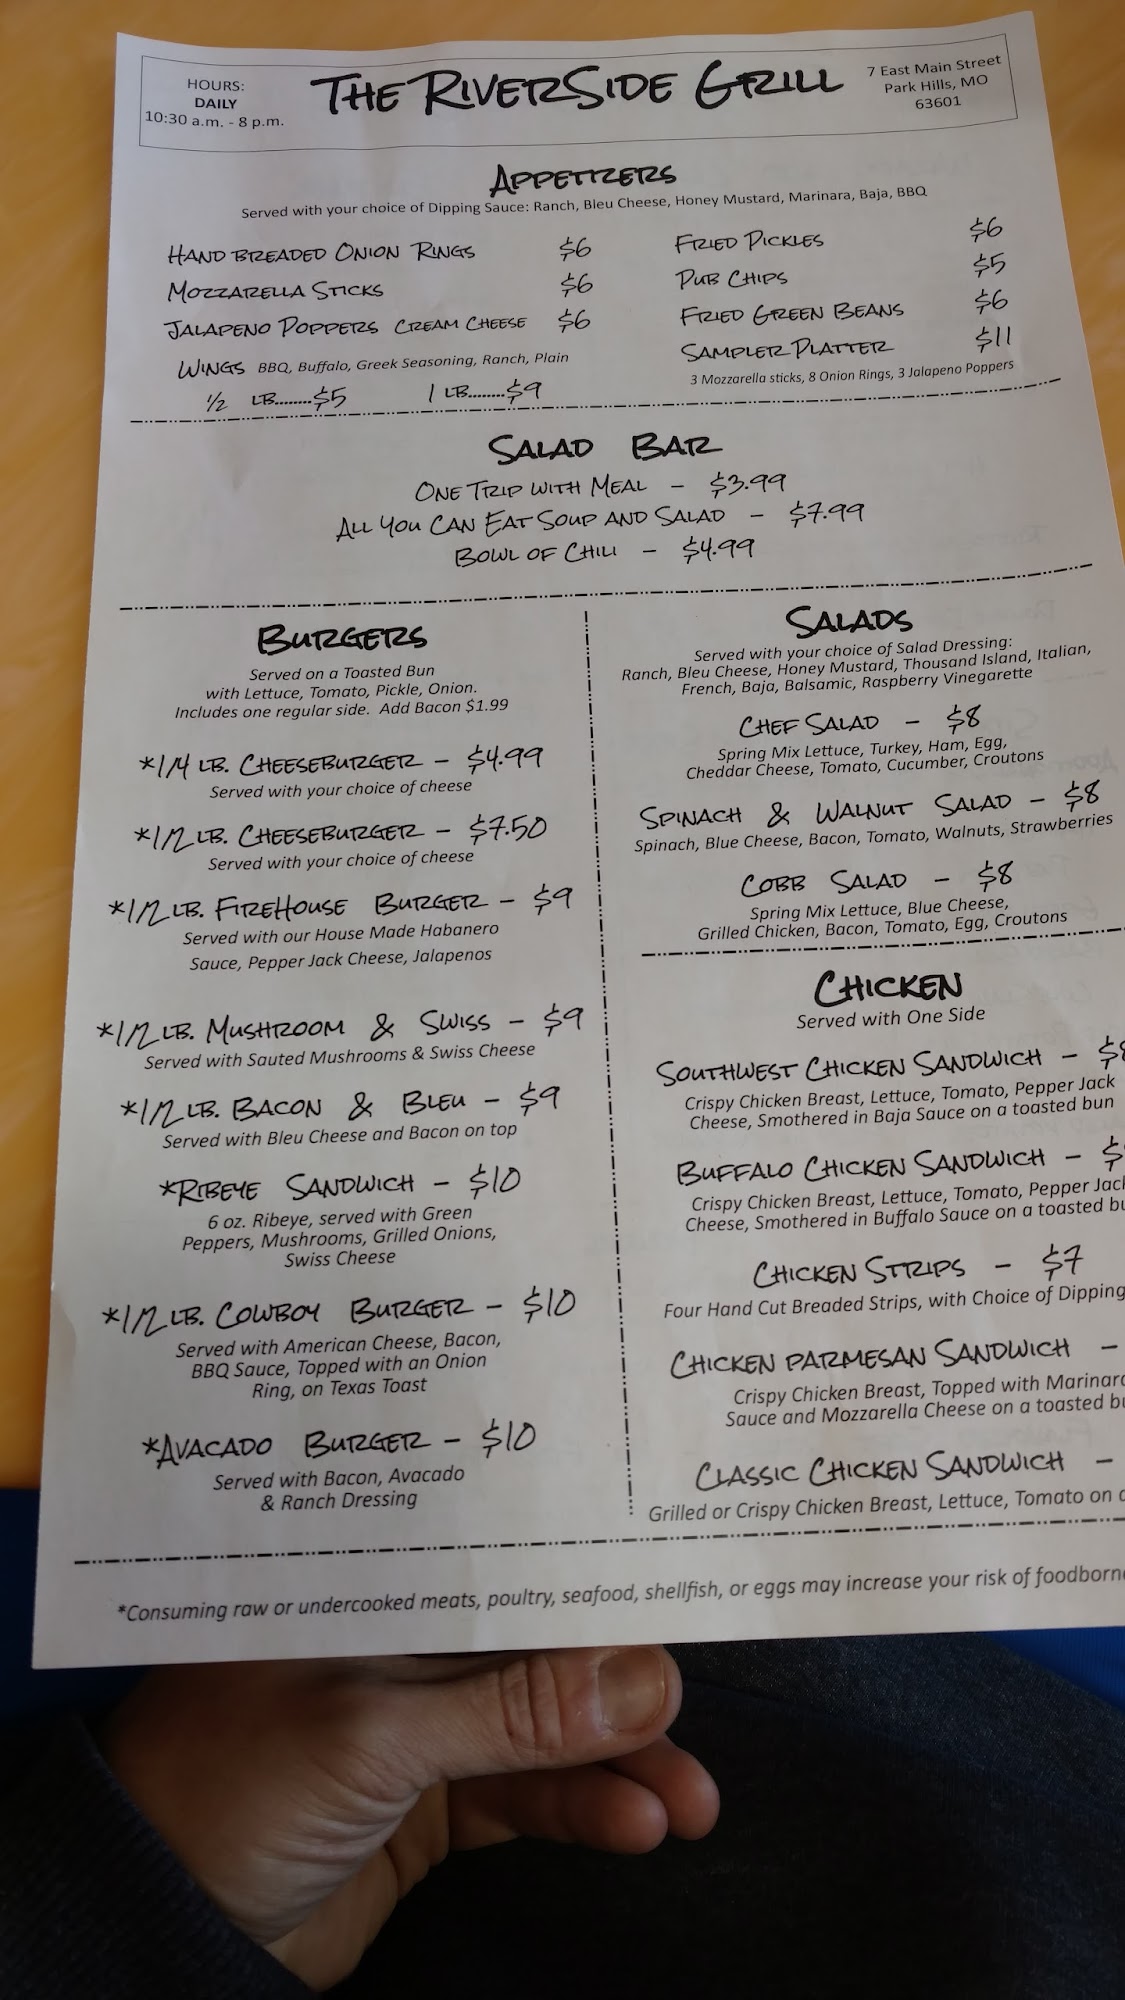 HOURS:
DAILY
10:30 a.m. - 8 p.m.
THE RIVERSIDE GRILL
7 East Main Street
Park Hills, MO
63601
APPETIZERS
Served with your choice of Dipping Sauce: Ranch, Bleu Cheese, Honey Mustard, Marinara, Baja, BBQ
HAND BREADED ONION RINGS $6
MOZZARELLA STICKS $6
JALAPENO POPPERS CREAM CHEESE $6
WINGS BBQ, Buffalo, Greek Seasoning, Ranch, Plain
1/2 LB........$5 1 LB........$9
FRIED PICKLES $6
PUB CHIPS $5
FRIED GREEN BEANS $6
SAMPLER PLATTER $11
3 Mozzarella sticks, 8 Onion Rings, 3 Jalapeno Poppers
SALAD BAR
ONE TRIP WITH MEAL - $3.99
ALL YOU CAN EAT SOUP AND SALAD - $7.99
BOWL OF CHILI - $4.99
BURGERS
Served on a Toasted Bun
with Lettuce, Tomato, Pickle, Onion.
Includes one regular side. Add Bacon $1.99
*1/4 LB. CHEESEBURGER - $4.99
Served with your choice of cheese
*1/2 LB. CHEESEBURGER - $7.50
Served with your choice of cheese
*1/2 LB. FIREHOUSE BURGER - $9
Served with our House Made Habanero
Sauce, Pepper Jack Cheese, Jalapenos
*1/2 LB. MUSHROOM & SWISS - $9
Served with Sauted Mushrooms & Swiss Cheese
*1/2 LB. BACON & BLEU - $9
Served with Bleu Cheese and Bacon on top
*RIBEYE SANDWICH - $10
6 oz. Ribeye, served with Green
Peppers, Mushrooms, Grilled Onions,
Swiss Cheese
*1/2 LB. COWBOY BURGER - $10
Served with American Cheese, Bacon,
BBQ Sauce, Topped with an Onion
Ring, on Texas Toast
*AVACADO BURGER - $10
Served with Bacon, Avacado
& Ranch Dressing
SALADS
Served with your choice of Salad Dressing:
Ranch, Bleu Cheese, Honey Mustard, Thousand Island, Italian,
French, Baja, Balsamic, Raspberry Vinegarette
CHEF SALAD - $8
Spring Mix Lettuce, Turkey, Ham, Egg,
Cheddar Cheese, Tomato, Cucumber, Croutons
SPINACH & WALNUT SALAD - $8
Spinach, Blue Cheese, Bacon, Tomato, Walnuts, Strawberries
COBB SALAD - $8
Spring Mix Lettuce, Blue Cheese,
Grilled Chicken, Bacon, Tomato, Egg, Croutons
CHICKEN
Served with One Side
SOUTHWEST CHICKEN SANDWICH - $8
Crispy Chicken Breast, Lettuce, Tomato, Pepper Jack
Cheese, Smothered in Baja Sauce on a toasted bun
BUFFALO CHICKEN SANDWICH - $
Crispy Chicken Breast, Lettuce, Tomato, Pepper Jack
Cheese, Smothered in Buffalo Sauce on a toasted
CHICKEN STRIPS - $7
Four Hand Cut Breaded Strips, with Choice of Dipping
CHICKEN PARMESAN SANDWICH -
Crispy Chicken Breast, Topped with Marinara
Sauce and Mozzarella Cheese on a toasted
CLASSIC CHICKEN SANDWICH -
Grilled or Crispy Chicken Breast, Lettuce, Tomato on
*Consuming raw or undercooked meats, poultry, seafood, shellfish, or eggs may increase your risk of foodborne